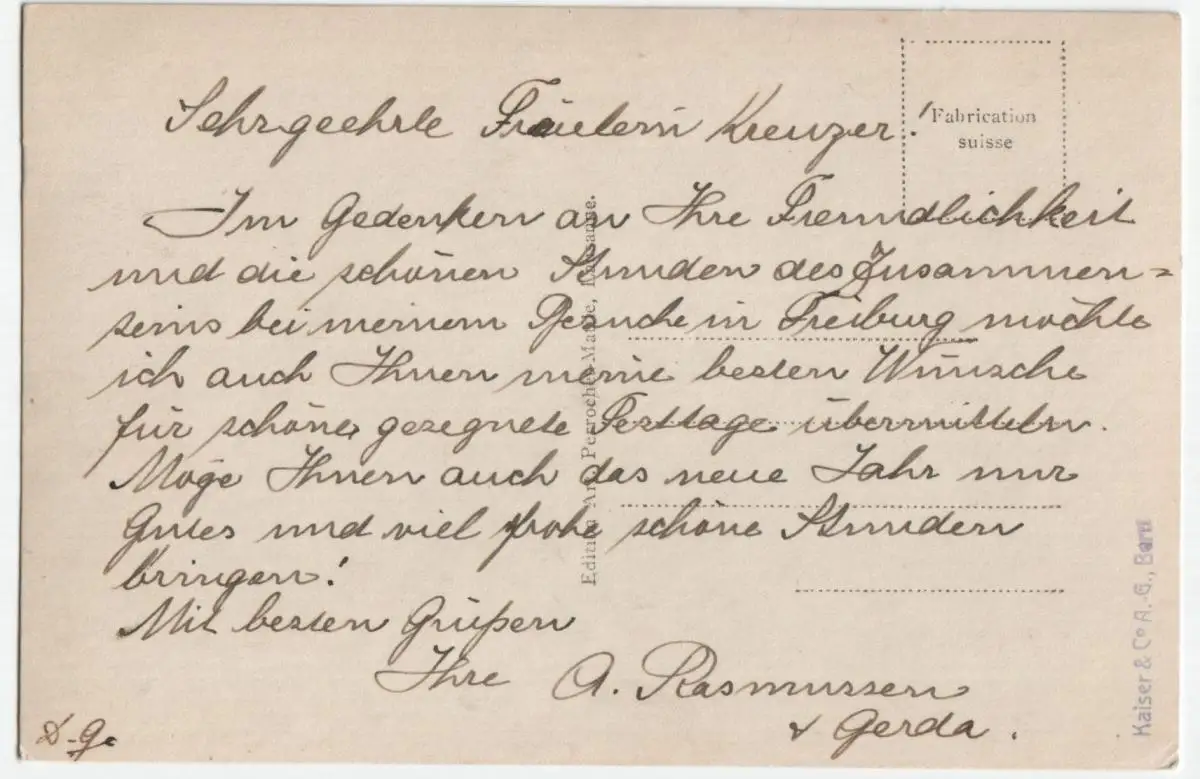 Sehrgeehrte Fräulein Kreuzer!
Im Gedenken an Ihre Freundlichkeit
und die schönen Stunden des Zusammen=
seins bei meinem Besuche in Freiburg möchte
ich auch Ihnen meine besten Wünsche
für schöne, gesegnete Festtage übermitteln.
Möge Ihnen auch das neue Jahr nur
Gutes und viel frohe schöne Stunden
bringen!
Mit besten Grüßen
Ihre A. Rasmussen
+ Gerda.
D-G.
Fabrication
suisse
Edition Art. Perrochet-Matile, Lausanne.
Kaiser & Co A.-G., Bern